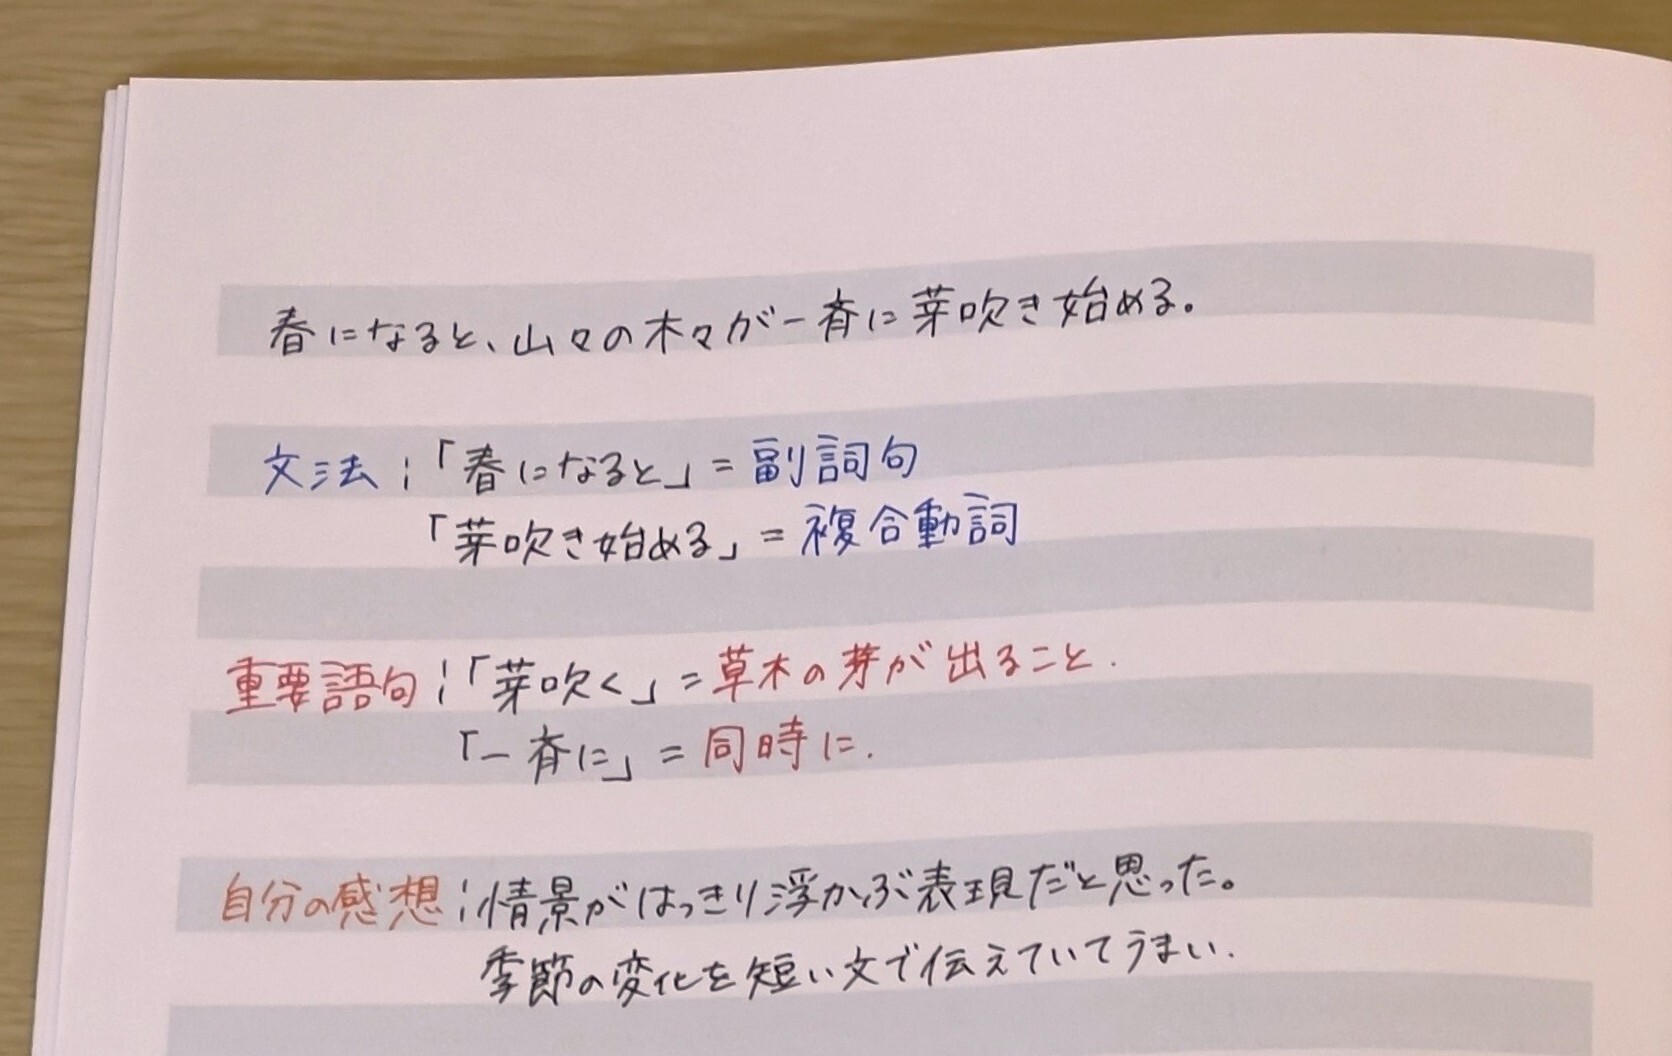 春になると、山々の木々が一斉に芽吹き始める。
文法:「春になると」=副詞句
「芽吹き始める」=複合動詞
重要語句:「芽吹く」=草木の芽が出ること.
「一斉に」=同時に.
自分の感想:情景がはっきり浮かぶ表現だと思った。
季節の変化を短い文で伝えていてうまい.